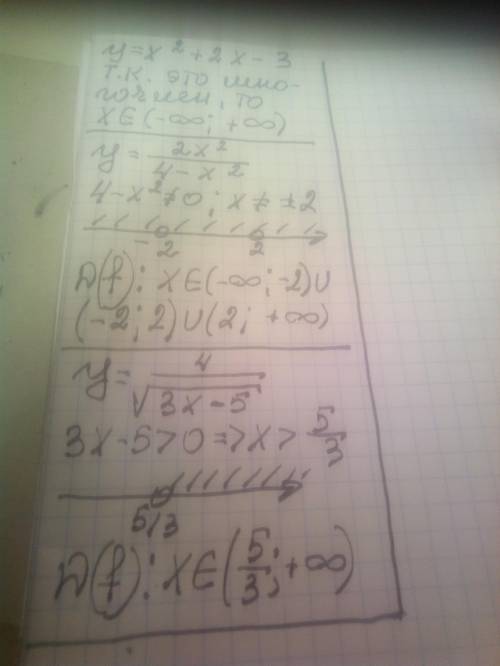 y = x² + 2x - 3
т.к. это мно-
гочлен, то
x∈(-∞; +∞)
y = 2x² / 4 - x²
4 - x² ≠ 0; x ≠ ±2
-2 2
D(f): x∈(-∞; -2)∪
(-2; 2)∪(2; +∞)
y = 4 / √3x - 5
3x - 5 > 0 => x > 5/3
5/3
D(f): x∈(5/3; +∞)